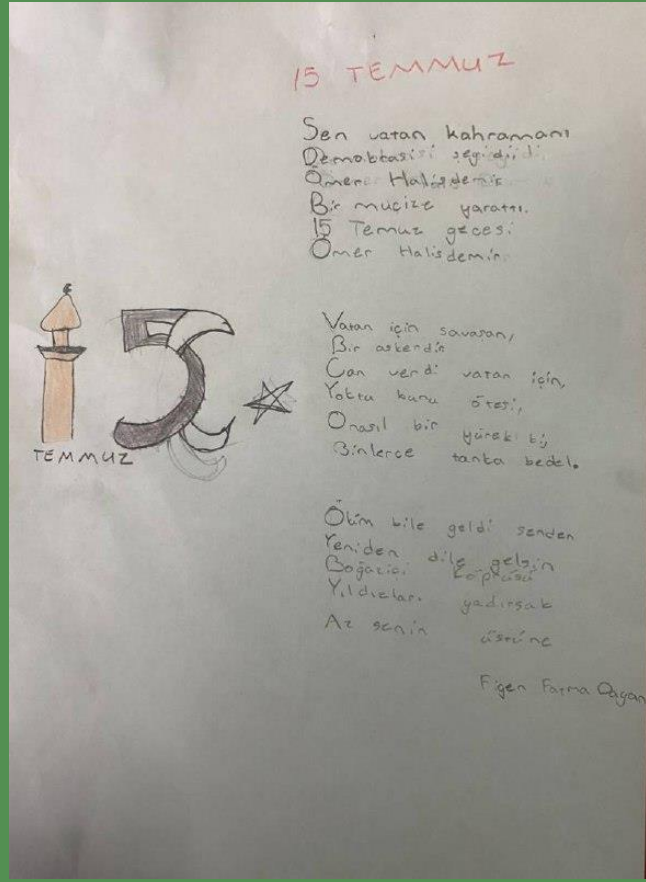 15 TEMMUZ
Sen vatan kahramanı
Ömer Halisdemir
Bir muçize yarattı.
15 Temuz gecesi
Ömer Halisdemir
Vatan için savasan,
Bir askerdin
Can verdi vatan için,
Yoktu bunu ötesi,
Onasıl bir yürek ki,
Binlerce tanka bedel.
TEMMUZ
Ölüm bile geldi senden
Yeniden dile gelsin
Boğaciçi köprüsü
Yıldızları yadırsak
Az senin üstüne
Figen Fatma